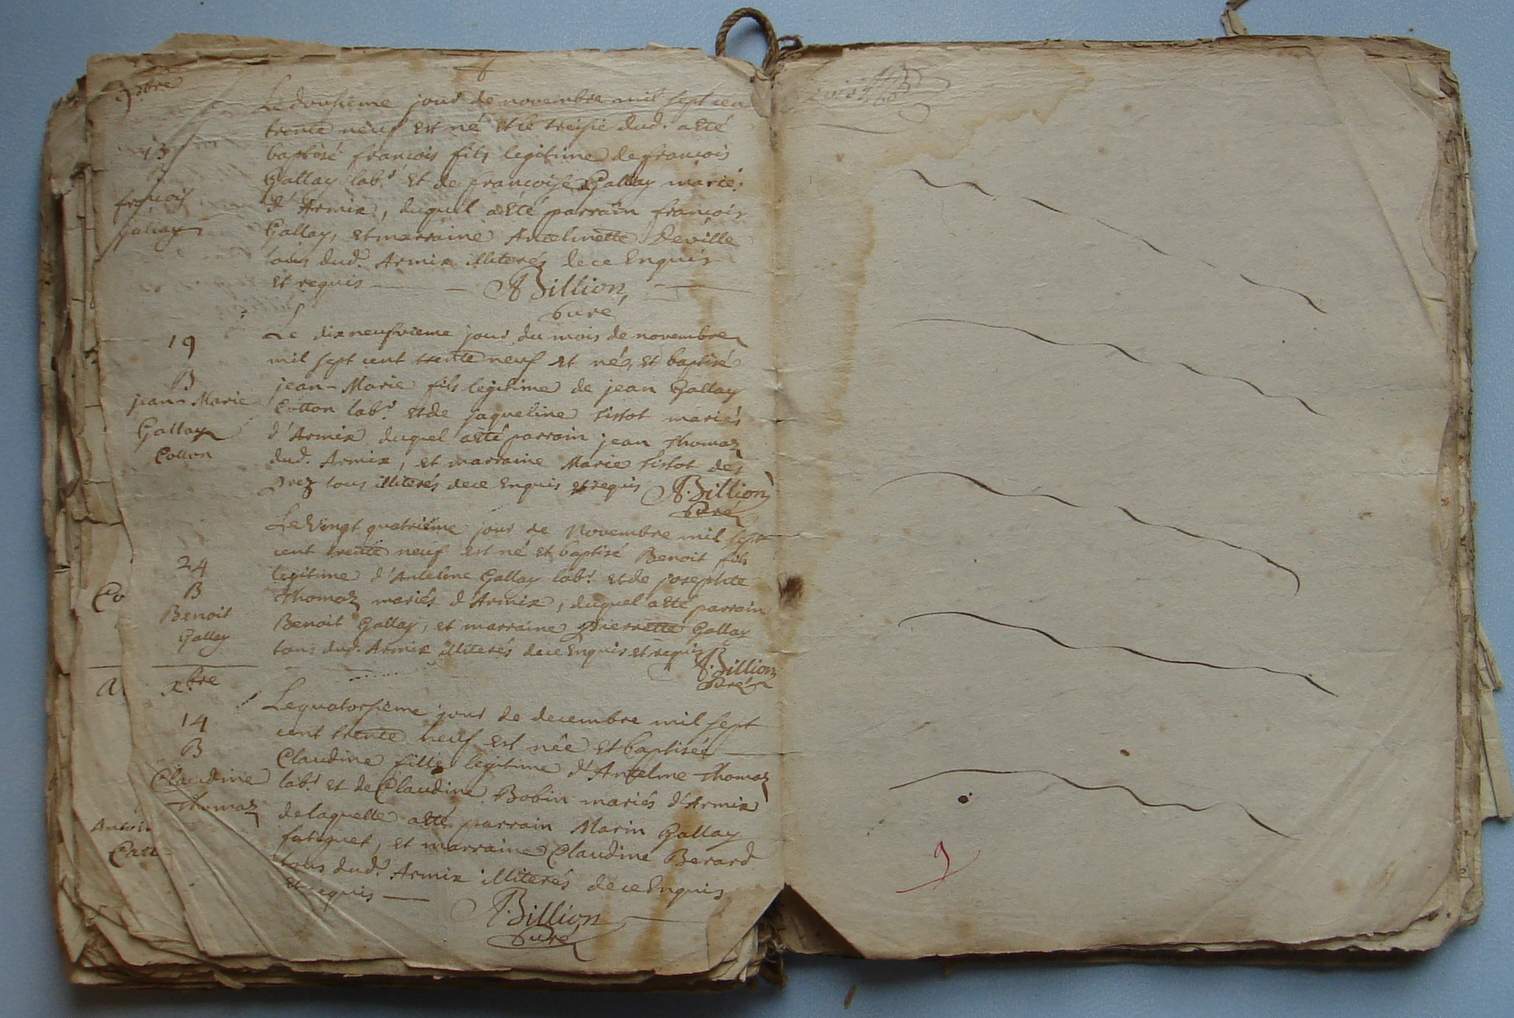 9bre
Le dousieme jour de novembre mil sept cent
trente neuf est né et le treisie dud. a eté
13
baptisé francois fils legitime de francois
B
Gallay lab.r et de francoise Gallay mariés
francois
d'Armix, duquel a eté parrain francois
Gallay
Gallay, et marraine Antelmette Deville
tous dud. Armix illiterés de ce Enquis
et requis — Billion
Curé
Le dixneufvieme jour du mois de novembre
19
mil sept cent trente neuf est né, et baptisé
B
jean-Marie fils legitime de jean Gallay
jean-Marie
Cotton lab.r et de jaqueline Tissot mariés
Gallay
d'Armix duquel a eté parrain jean Thomaz
Cotton
dud. Armix, et marraine Marie Tissot des
Prez tous illiterés de ce Enquis et requis Billion
Curé
Le Vingt quatrième jour de Novembre mil sept
cent trente neuf est né et baptisé Benoit fils
24
legitime d'Antelme Gallay lab.r et de josephte
B
Thomaz mariés d'Armix, duquel a eté parrain
Benoit
Benoit Gallay, et marraine Pierrette Gallay
Gallay
tous dud. Armix illiterés de ce Enquis et requis Billion
Curé
Co
xbre
A
Le quatorsième jour de decembre mil sept
14
cent trente neuf est née et baptisée
B
Claudine fille legitime d'Antelme Thomaz
Claudine
lab.r et de Claudine Bobin mariés d'Armix
Thomaz
de laquelle a eté parrain Marin Gallay
Antoi
, et marraine Claudine Berard
tous dud. Armix illiterés de ce Enquis
et requis — Billion
Curé
9